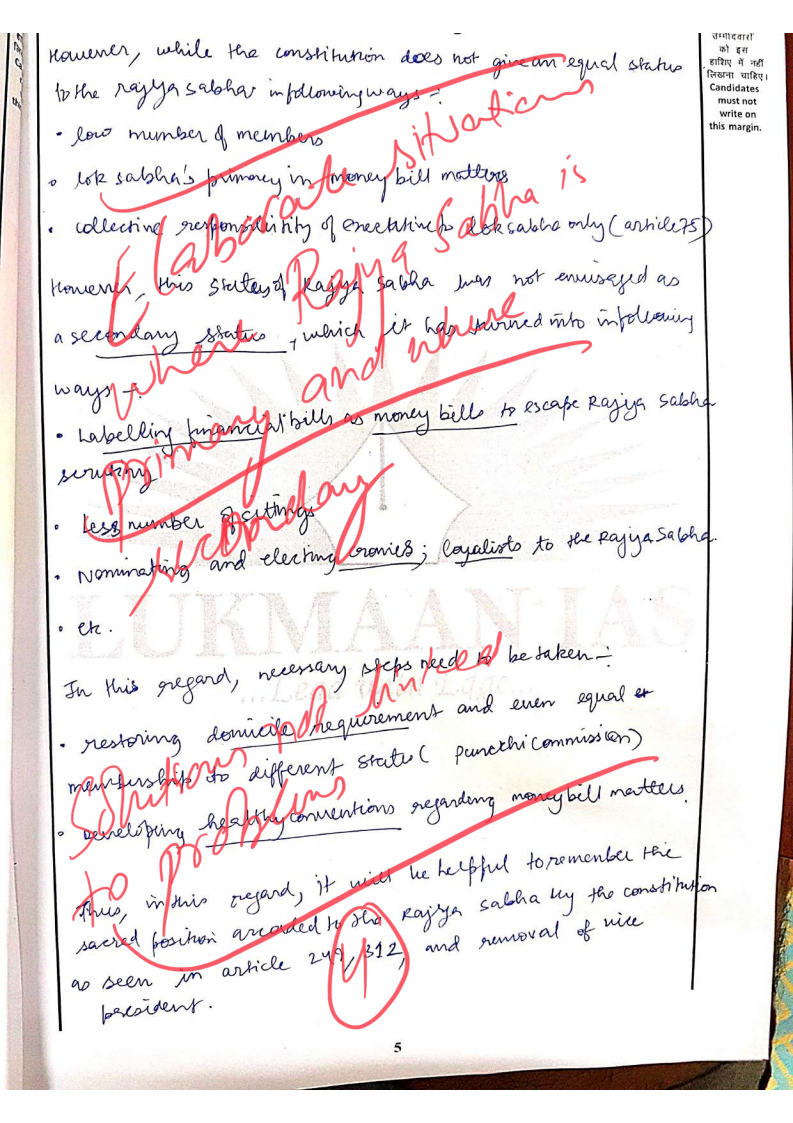 However, while the constitution does not give an equal status
to the rajya sabha in following ways :
• low number of members
• lok sabha's primacy in money bill matters
• collective responsibility of executive to lok sabha only (article 75)
However, this status of Rajya Sabha was not envisaged as
a secondary status, which it has turned into in following
ways :-
• Labelling financial bills as money bills to escape Rajya Sabha
scrutiny
• Less number of sittings
• Nominating and electing cronies; loyalists to the Rajya Sabha.
• etc.
In this regard, necessary steps need to be taken :-
• restoring domicile requirement and even equal
membership to different states (Punchhi Commission)
• Developing healthy conventions regarding money bill matters.
Thus, in this regard, it will be helpful to remember the
sacred position accorded to the Rajya Sabha by the constitution
as seen in article 249, 312, and removal of vice
president.
Elaborate situations
where Rajya Sabha is
primary and where
secondary
Solutions not linked
to problems
4
LUKMAAN IAS
उम्मीदवारों
को इस
हाशिए में नहीं
लिखना चाहिए।
Candidates
must not
write on
this margin.
5